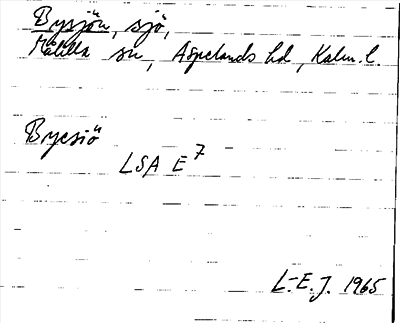 Bysjön, sjö,
Målilla sn, Aspelands hd, Kalm. l.
Byesiö
LSA E7
L.-E. J. 1965